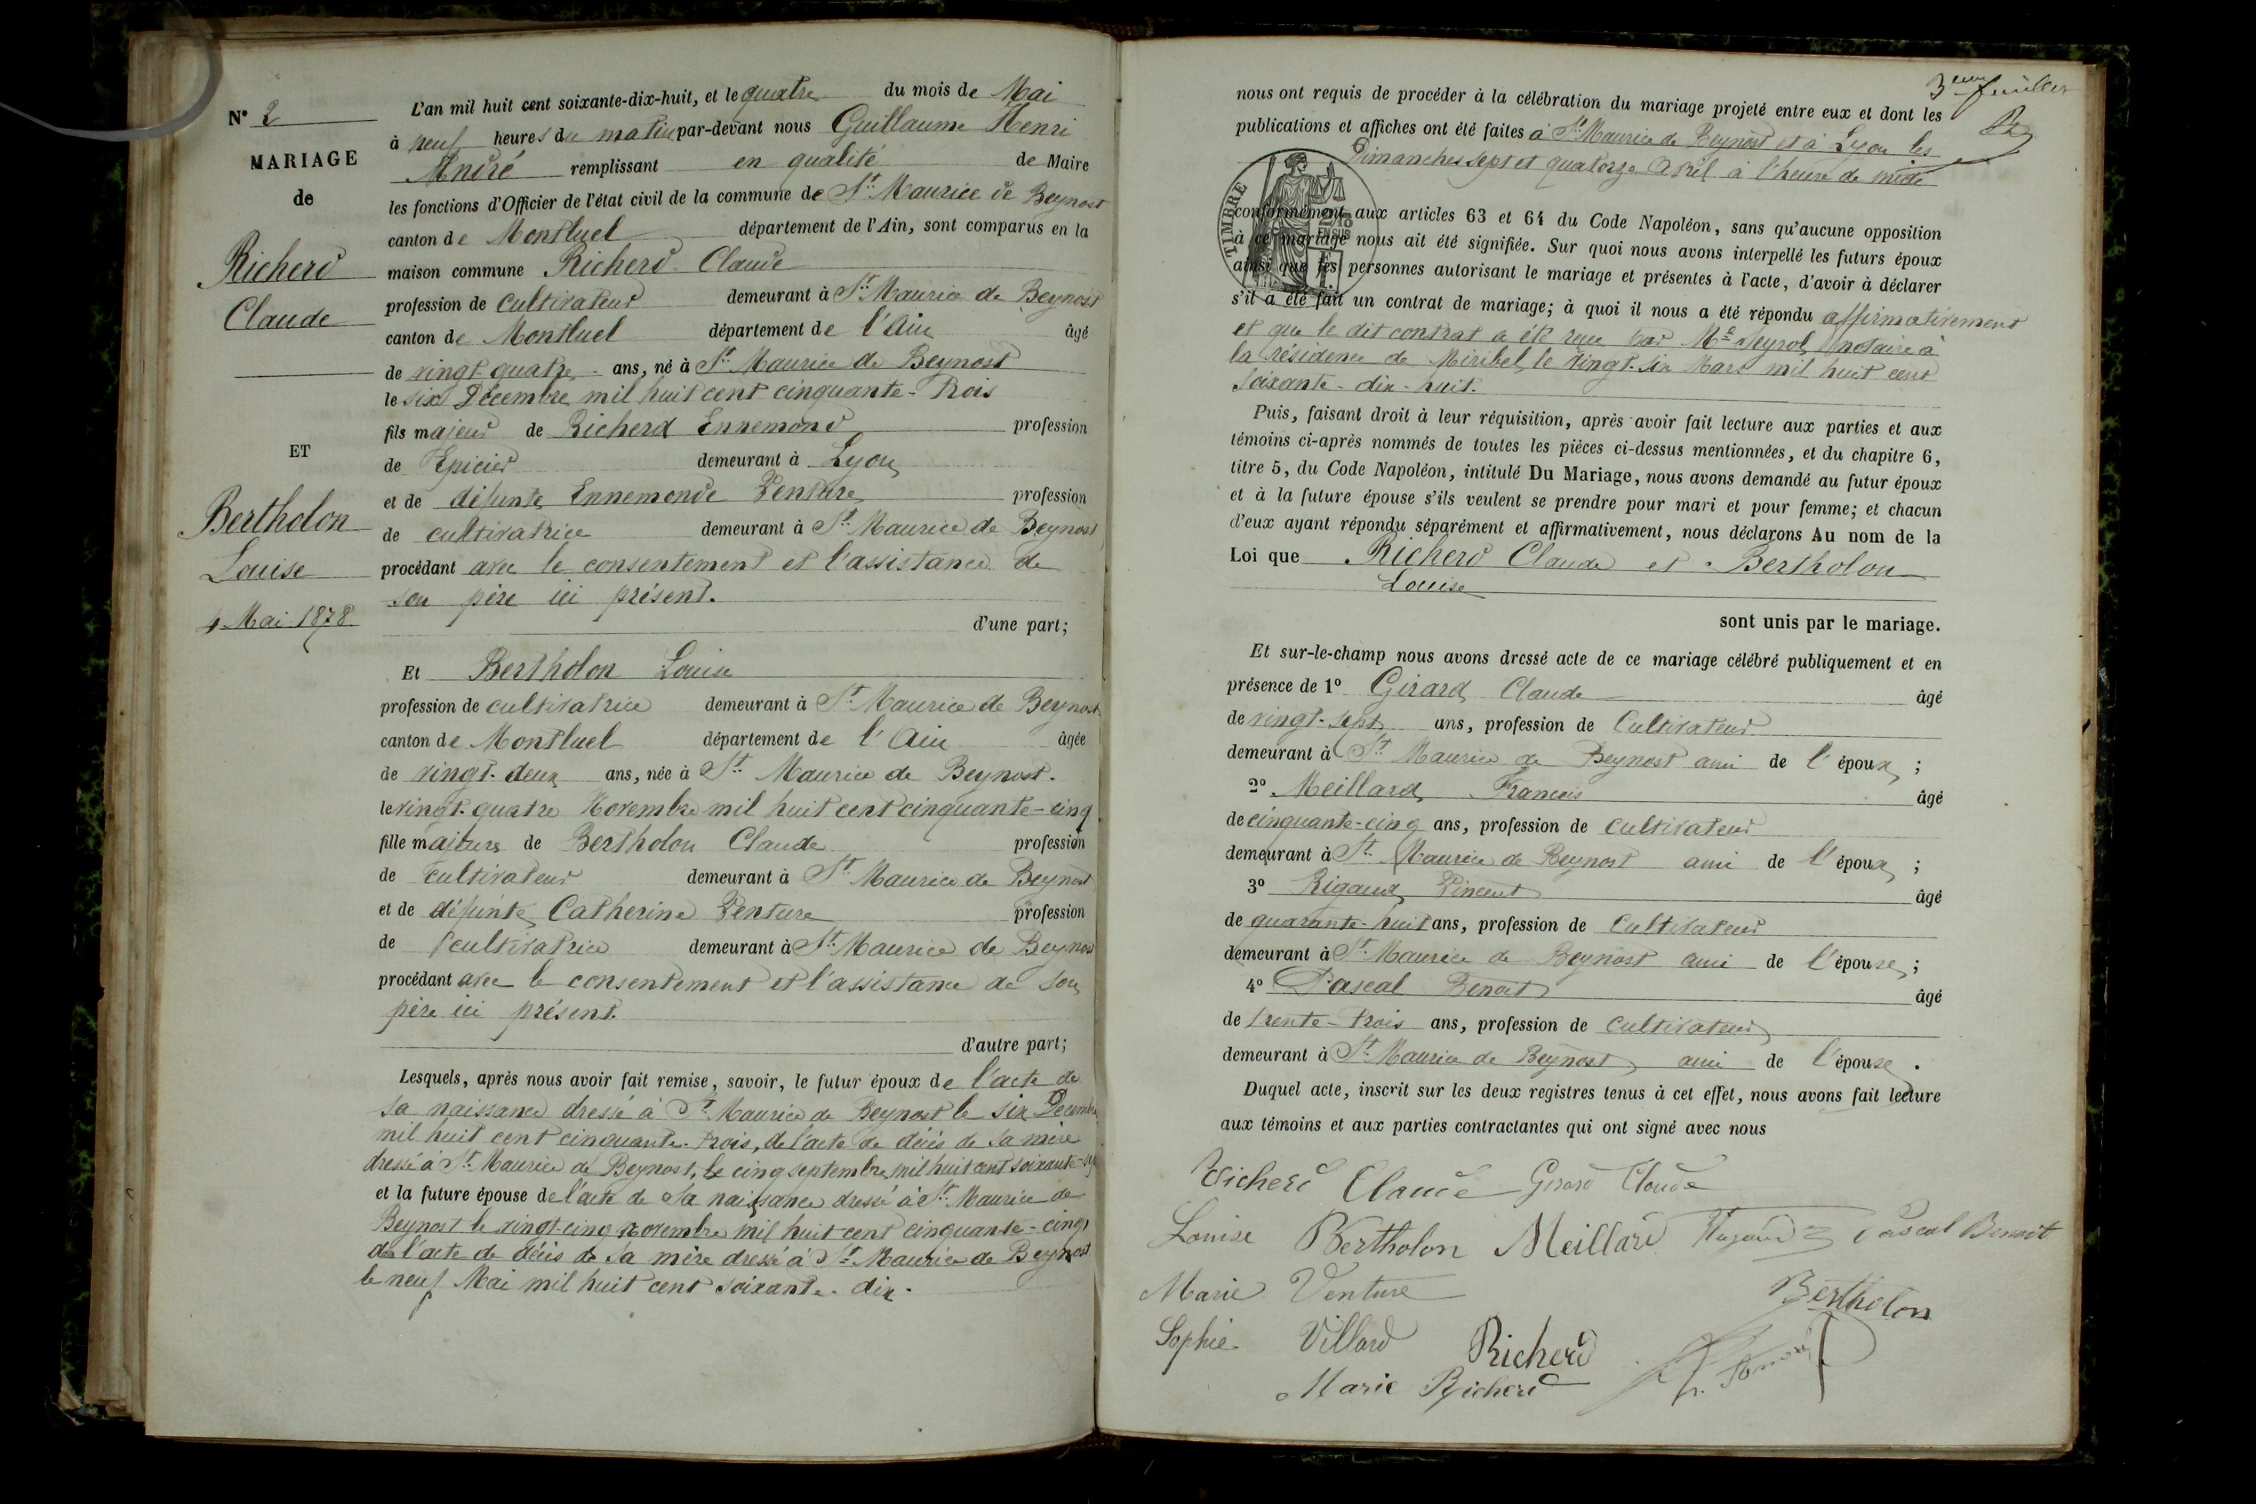 N° 2
MARIAGE
de
Richerd
Claude
ET
Bertholon
Louise
4 Mai 1878
L'an mil huit cent soixante-dix-huit, et le quatre du mois de Mai
à neuf heures du matin par-devant nous Guillaume Henri
André remplissant en qualité de Maire
les fonctions d'Officier de l'état civil de la commune de St Maurice de Beynost
canton de Montluel département de l'Ain, sont comparus en la
maison commune Richerd Claude
profession de cultivateur demeurant à St Maurice de Beynost
canton de Montluel département de l'Ain âgé
de vingt-quatre ans, né à St Maurice de Beynost
le six Décembre mil huit cent cinquante-trois
fils majeur de Richerd Ennemond profession
de Epicier demeurant à Lyon
et de défunte Ennemonde Venture profession
de cultivatrice demeurant à St Maurice de Beynost
procédant avec le consentement et l'assistance de
son père ici présent.
d'une part;
Et Bertholon Louise
profession de cultivatrice demeurant à St Maurice de Beynost
canton de Montluel département de l'Ain âgée
de vingt-deux ans, née à St Maurice de Beynost.
le vingt-quatre Novembre mil huit cent cinquante-cinq
fille majeure de Bertholon Claude profession
de cultivateur demeurant à St Maurice de Beynost
et de défunte Catherine Venture profession
de cultivatrice demeurant à St Maurice de Beynost
procédant avec le consentement et l'assistance de son
père ici présent.
d'autre part;
Lesquels, après nous avoir fait remise, savoir, le futur époux de l'acte de
sa naissance dressé à St Maurice de Beynost le six Décembre
mil huit cent cinquante-trois, de l'acte de décès de sa mère
dressé à St Maurice de Beynost, le cinq septembre mil huit cent soixante
et la future épouse de l'acte de sa naissance dressé à St Maurice de
Beynost le vingt-cinq novembre mil huit cent cinquante-cinq
de l'acte de décès de sa mère dressé à St Maurice de Beynost
le neuf Mai mil huit cent soixante-dix.
3eme feuillet
nous ont requis de procéder à la célébration du mariage projeté entre eux et dont les
publications et affiches ont été faites à St Maurice de Beynost et à Lyon les
Dimanches sept et quatorze Avril à l'heure de midi
TIMBRE
2/10
EN SUS
conformément aux articles 63 et 64 du Code Napoléon, sans qu'aucune opposition
à ce mariage nous ait été signifiée. Sur quoi nous avons interpellé les futurs époux
ainsi que les personnes autorisant le mariage et présentes à l'acte, d'avoir à déclarer
s'il a été fait un contrat de mariage; à quoi il nous a été répondu affirmativement
et que le dit contrat a été reçu par Me Seyrol, notaire à
la résidence de Miribel, le vingt-six Mars mil huit cent
soixante-dix-huit.
Puis, faisant droit à leur réquisition, après avoir fait lecture aux parties et aux
témoins ci-après nommés de toutes les pièces ci-dessus mentionnées, et du chapitre 6,
titre 5, du Code Napoléon, intitulé Du Mariage, nous avons demandé au futur époux
et à la future épouse s'ils veulent se prendre pour mari et pour femme; et chacun
d'eux ayant répondu séparément et affirmativement, nous déclarons Au nom de la
Loi que Richerd Claude et Bertholon
Louise
sont unis par le mariage.
Et sur-le-champ nous avons dressé acte de ce mariage célébré publiquement et en
présence de 1° Girard Claude âgé
de vingt-sept ans, profession de Cultivateur
demeurant à St Maurice de Beynost ami de l'époux ;
2° Meillard Francois âgé
de cinquante-cinq ans, profession de cultivateur
demeurant à St Maurice de Beynost ami de l'époux ;
3° Rigaud Vincent âgé
de quarante-huit ans, profession de Cultivateur
demeurant à St Maurice de Beynost ami de l'épouse ;
4° Pascal Benoit âgé
de trente-trois ans, profession de cultivateur
demeurant à St Maurice de Beynost ami de l'épouse .
Duquel acte, inscrit sur les deux registres tenus à cet effet, nous avons fait lecture
aux témoins et aux parties contractantes qui ont signé avec nous
Richerd Claude Girard Claude
Louise Bertholon Meillard Rigaud Pascal Benoit
Marie Venture Bertholon
Sophie Villard Richerd
Marie Richerd